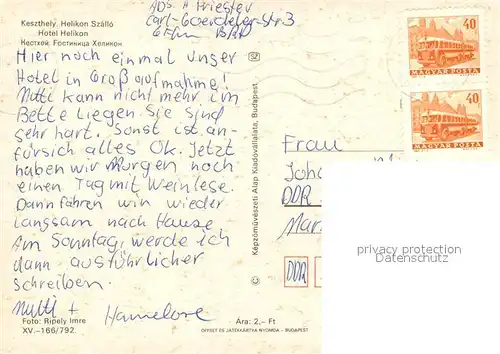 Keszthely. Helikon Szálló
Hotel Helikon
Кестхей. Гостиница Хеликон
Ads. H Priester
Carl-Goerdeler-Str 3
BRD
Hier noch einmal unser
Hotel in Großaufnahme!
Mutti kann nicht mehr im
Bette liegen. Sie sind
sehr hart. Sonst ist an-
fürsich alles Ok. Jetzt
haben wir Morgen noch
einen Tag mit Weinlese.
Dann fahren wir wieder
langsam nach Hause
Am Sonntag, werde ich
dann ausführlicher
schreiben.
Mutti + Hannelore
Foto: Ripely Imre
XV.-166/792.
Ára: 2,- Ft
OFFSET ÉS JÁTÉKKÁRTYA NYOMDA - BUDAPEST
Képzőművészeti Alap Kiadóvállalata, Budapest
40
MAGYAR POSTA
40
MAGYAR POSTA
Frau
DDR
DDR
privacy protection